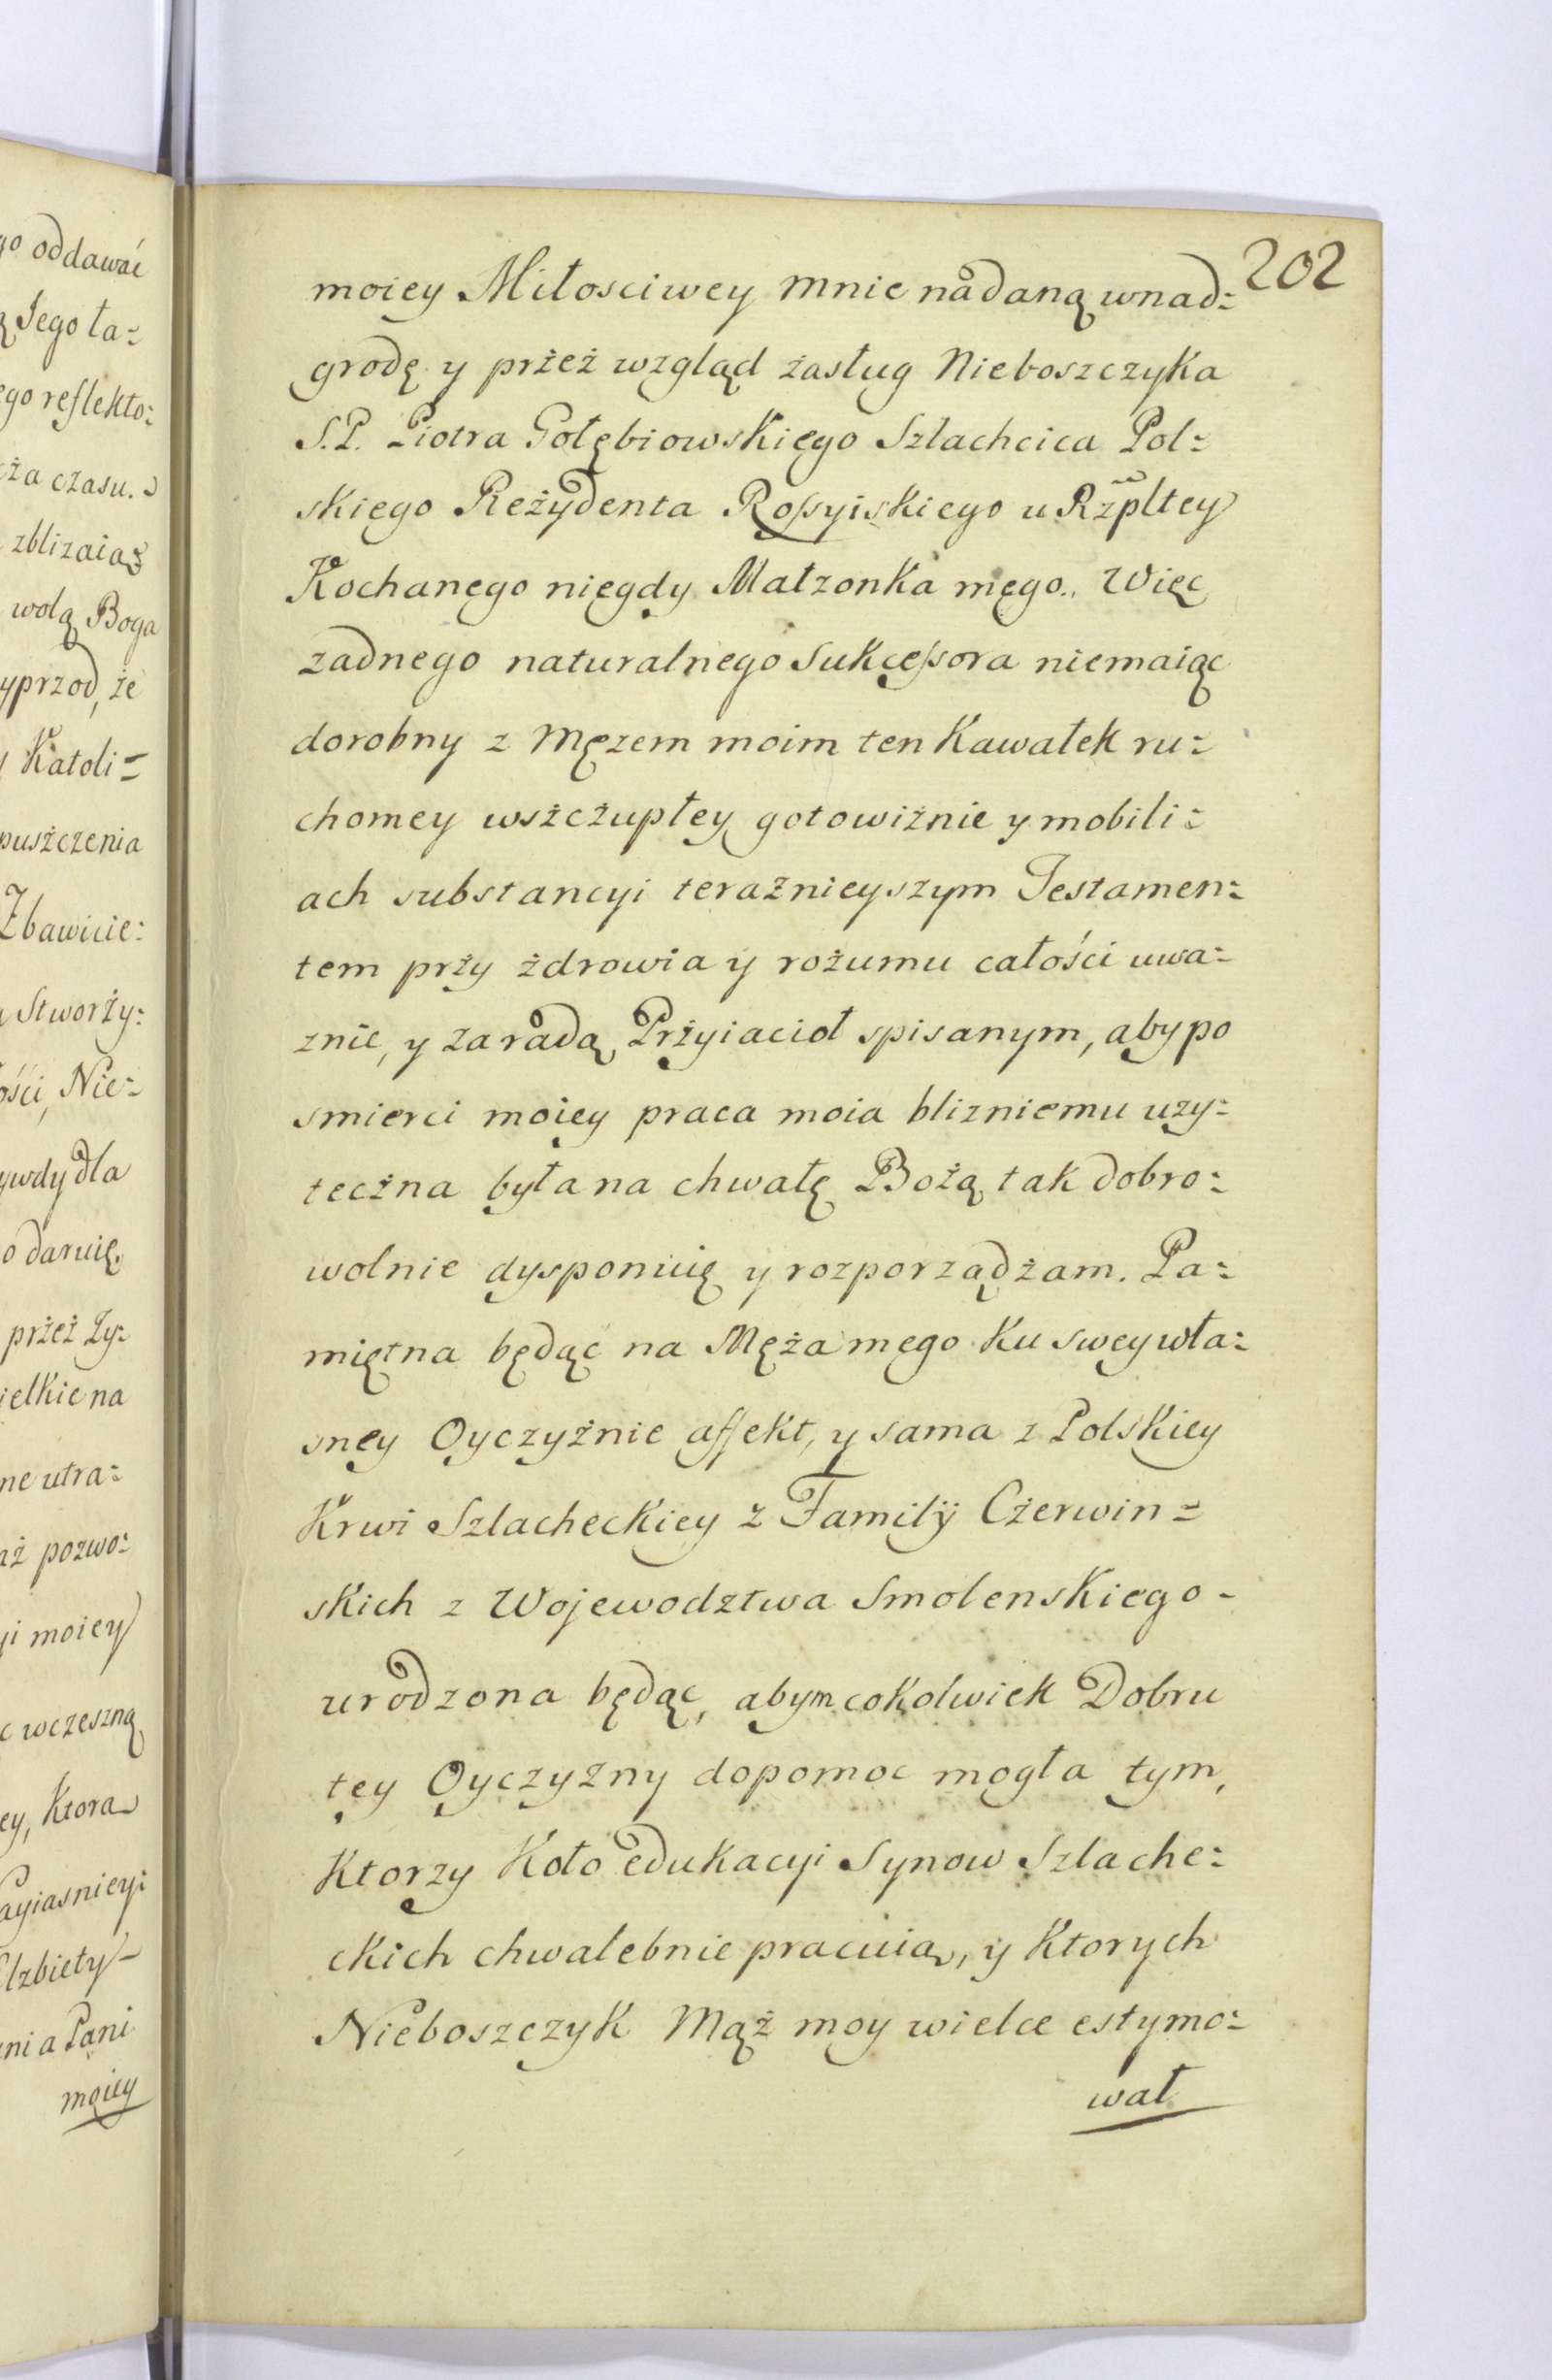 go oddawać
ą Jego ła=
ego reflekto:
ża czasu.
zblizaiąc
wolą Boga
yprzod, że
y Katoli=
puszczenia
Zbawicie:
Stworży:
ości, Nie=
ywdy dla
o daruię,
przeż Zy:
ielkie na
ne utra=
aż pozwo:
yi moiey
c wczeszną
ey, Ktora
ayiasnieyi
Elzbiety
ania Pani
moiey
202
moiey Miłosciwey mnie nadaną wnad:
grodę y prżeż wzgląd żasług Nieboszczyka
S.P. Piotra Gołębiowskiego Szlachcica Pol=
skiego Reżydenta Rossyiskiego u Rzpltey
Kochanego niegdy Małzonka mego. Więc
zadnego naturalnego Sukcessora niemaiąc
dorobny z Męzem moim ten Kawałek ru=
chomey wszcżupłey gotowiżnie y mobili=
ach substancyi terażnieyszym Testamen=
tem prży żdrowia y rożumu całości uwa=
znie, y za radą Prżyiacioł spisanym, aby po
smierci moiey praca moia blizniemu uzy=
tecżna była na chwałę Bożą tak dobro=
wolnie dysponuię y rozporządżam. Pa=
miętna będąc na Męża mego Ku swey wła=
sney Oyczyżnie affekt, y sama z Polskiey
Krwi Szlacheckiey z Familÿ Cżerwin=
skich z Wojewodztwa Smolenskiego-
urodzona będąc, abym cokolwiek Dobru
tey Oyczyzny dopomoc mogła tym,
Ktorzy Koło edukacyi Synow Szlache=
ckich chwalebnie pracuią, y Ktorych
Nieboszczyk Mąż moy wielce estymo=
wał